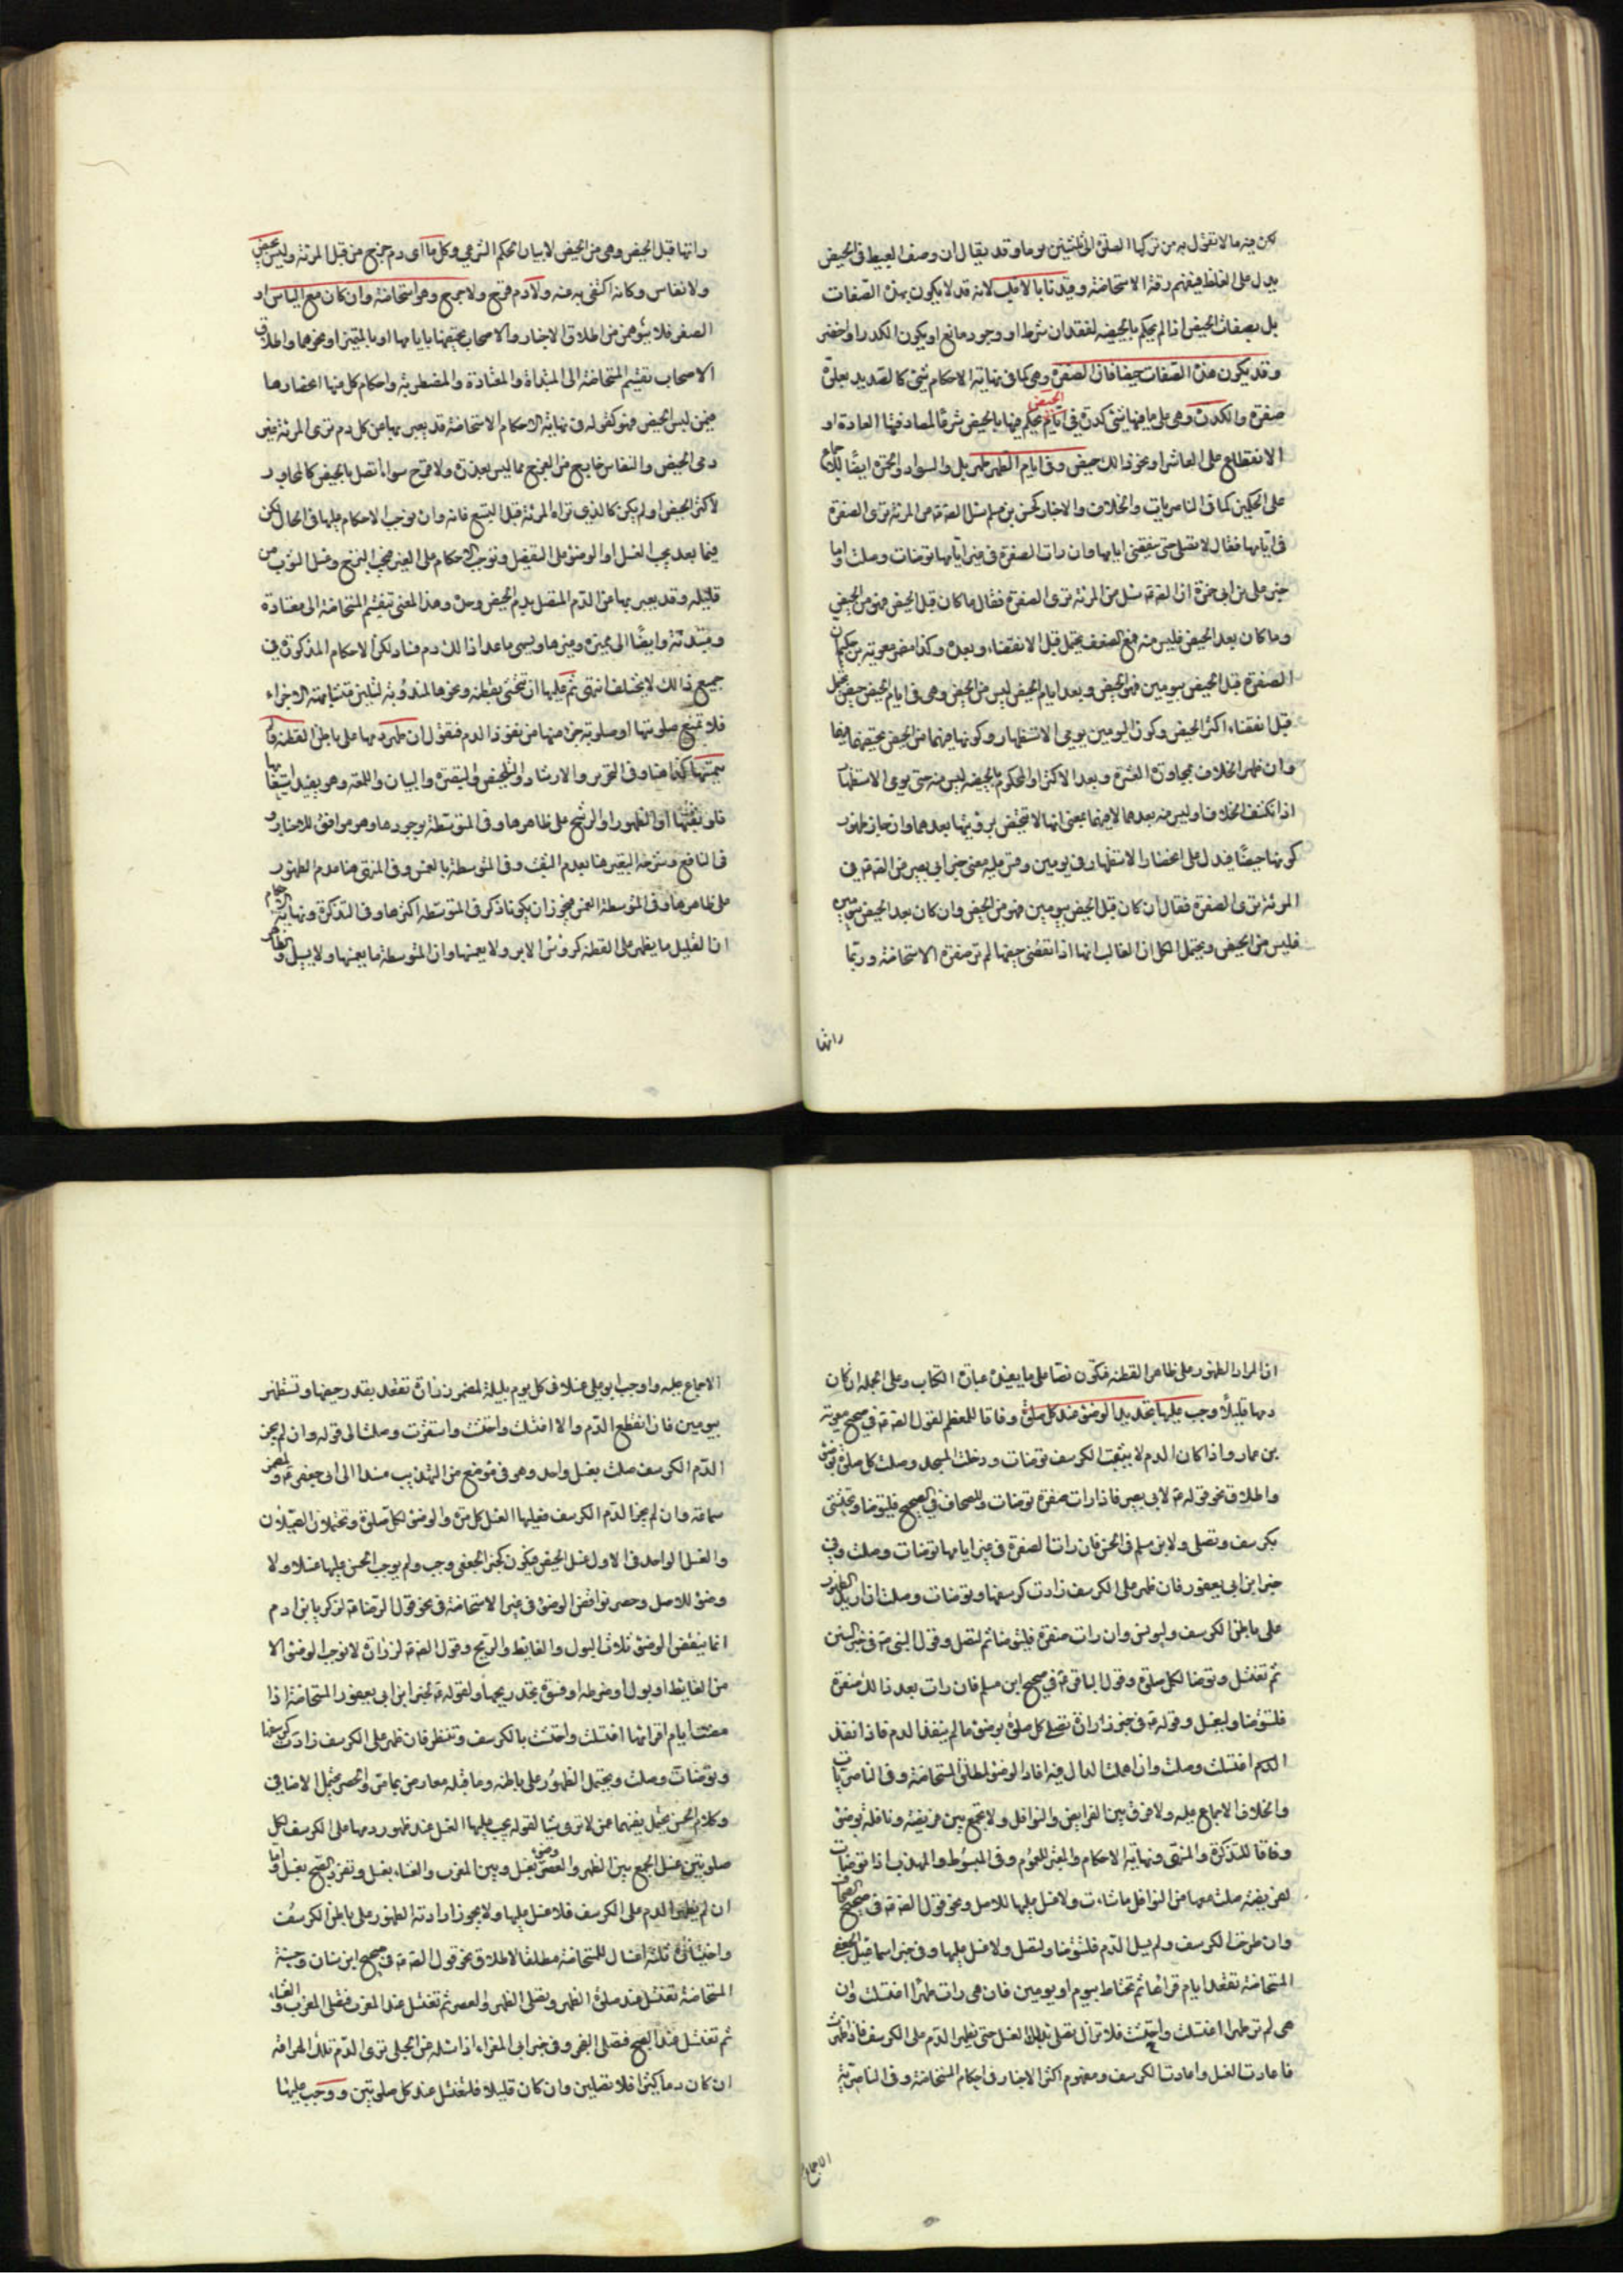 لكن فيه ما لا نقول به من تركها الصلوة الى ثلثين يوما وقد يقال ان وصف العبيط في الحيض
يدل على الغلظ فيفهم رقة الاستحاضة وقيدنا بالاغلب لانه قد لا يكون بهذه الصفات
بل بصفات الحيض اذا لم يحكم بالحيضية لفقدان شرط او وجود مانع او يكون اكدر او اخضر
وقد يكون هذه الصفات حيضا فان الصفرة وهي كما في نهاية الاحكام شئ كالصديد يعلوه
صفرة والكدرة وهي على ما فيها شئ كدر في ايام الحيض يحكم فيها بالحيض شرعا لمصادفتها العادة او
الانقطاع على العاشر او نحو ذلك حيض وفي ايام الطهر طهر بل والسواد والحمرة ايضا للاجماع
على الحكمين كما في الناصريات والخلاف والاخبار كحسن بن مسلم سئل الصادق عن المرئة ترى الصفرة
في ايامها فقال لا تصلي حتى تنقضي ايامها وان رات الصفرة في غير ايامها توضات وصلت واما
خبر علي بن ابي حمزة ان الصادق سئل عن المرئة ترى الصفرة فقال ما كان قبل الحيض فهو من الحيض
وما كان بعد الحيض فليس منه فمع الضعف يحتمل قبل الانقضاء وبعده وكذا مضمر معوية بن حكيم
الصفرة قبل الحيض بيومين فهو الحيض وبعد ايام الحيض ليس من الحيض وهي في ايام الحيض حيض يحتمل
قبل انقضاء اكثر الحيض وكون اليومين يومي الاستظهار وكونها فيهما من الحيض تحيضها فيهما
وان ظهر الخلاف بمجاوزة العشرة وبعد الاكثر او المحكوم بالحيضية ليس منه حتى يومي الاستظهار
اذا انكشف الخلاف او ليس منه بعدهما لا فيهما بمعنى انها لا تتحيض برؤيتها بعدهما وان جاز ظهور
كونها حيضا فيدل على انحصار الاستظهار في يومين ومثله معنى خبر ابي بصير عن الصادق في
المرئة ترى الصفرة فقال ان كان قبل الحيض بيومين فهو من الحيض وان كان بعد الحيض بيومين
فليس من الحيض ويحتمل الكل ان الغالب انها اذا انقضى حيضها لم تر صفرة الاستحاضة وربما
راتها
راتها قبل الحيض وهي من الحيض لا بيان الحكم الشرعي وكل ما اي دم يخرج من قبل المرئة وليس بحيض
ولا نفاس وكانه اكتفى به منه ولا دم قرح ولا جرح وهو استحاضة وان كان مع الياس او
الصغر فلا يتوهمن من اطلاق الاخبار والاصحاب تحيضها بايامها او بالتميز او نحوهما واطلاق
الاصحاب تقسيم المستحاضة الى المبتداة والمعتادة والمضطربة واحكام كل منها انحصارها
فيمن ليس الحيض فهو كقوله في نهاية الاحكام الاستحاضة قد يعبر بها عن كل دم ترى المرئة غير
دمي الحيض والنفاس خارج من الفرج مما ليس بعذرة ولا قرح سواء اتصل بالحيض كالمجاوز
لاكثر الحيض او لم يكن كالذي تراه المرئة قبل التسع فانه وان لم يوجب الاحكام عليها في الحال لكن
فيما بعد يجب الغسل او الوضوء على التفصيل وتوجب الاحكام على الغير فيجب النزح وغسل الثوب من
قليله وقد يعبر بها عن الدم المتصل بدم الحيض وحده وبهذا المعنى تنقسم المستحاضة الى معتادة
ومبتدئة وايضا الى مميزة وغيرها ويسمى ماعدا ذلك دم فساد لكن الاحكام المذكورة في
جميع ذلك لا يختلف انتهى ثم عليها ان تحتشي بقطنة ونحوها المندوبة لتلين متشابهة الاجزاء
فلا تمنع صلابتها او صلابة جزء منها من نفوذ الدم فنقول ان ظهر دمها على باطن القطنة ولم
يغمسها كذا هنا وفي التحرير والارشاد والتلخيص والتبصرة والبيان واللمعة وهو يفيد استيعابها
فلو يثقبها او الظهور او الرشح على ظاهرها وفي المتوسطة بوجودها وهو موافق للاخبار و
في النافع وشرحه التعبير هنا بعدم الثقب وفي المتوسطة بالغمس وفي المنتهى هنا عدم الظهور
على ظاهرها وفي المتوسطة الغمس فيجوز ان يكونا ذكر في المتوسطة اكثرها وفي التذكرة ونهاية الاحكام
ان القليل ما يظهر على القطنة كرؤس الابر ولا يغمسها وان المتوسطة ما يغمسها ولا يسيل والظاهر
ان المراد الظهور على ظاهر القطنة فتكون نصا على ما يفيده عبارة الكتاب وعلى الجملة ان كان
دمها قليلا وجب عليها تجديد الوضوء عند كل صلوة وفاقا للمعظم لقول الصادق في صحيح معوية
بن عمار واذا كان الدم لا يثقب الكرسف توضات ودخلت المسجد وصلت كل صلوة بوضوء
واطلاق نحو قوله لابي بصير فاذا رات صفرة توضات وللصحاف في الصحيح فلتتوضا وتحتشي
بكرسف وتصلي ولابن مسلم في الحسن فان رات الصفرة في غير ايامها توضات وصلت وفي
خبر ابن ابي يعفور فان ظهر على الكرسف زادت كرسفها وتوضات وصلت ان اريد الظهور
على باطن الكرسف وليونس وان رات صفرة فلتتوضا ثم لتصل وقول النبي في خبر السنن
ثم تغتسل وتوضا لكل صلوة وقول الباقر في صحيح ابن مسلم فان رات بعد ذلك صفرة
فلتتوضا ولتصل وقوله في خبر زرارة تصلي كل صلوة بوضوء ما لم ينفذ الدم فاذا نفذ
الدم اغتسلت وصلت وان اهملت الدال فيه افاد الوضوء لمطلق المستحاضة وفي الناصريات
والخلاف الاجماع عليه ولا فرق بين الفرايض والنوافل ولا تجمع بين فريضة ونافلة بوضوء
وفاقا للتذكرة والمنتهى ونهاية الاحكام والمعتبر للعموم وفي المبسوط والمهذب اذا توضات
لفريضة صلت معها من النوافل ما شاءت ولا غسل عليها للاصل ونحو قول الصادق في صحيح الصحاف
وان طرحت الكرسف ولم يسل الدم فلتتوضا ولتصل ولا غسل عليها وفي خبر اسماعيل الجعفي
المستحاضة تقعد ايام قرائها ثم تحتاط بيوم او يومين فان هي رات طهرا اغتسلت وان
هي لم تر طهرا اغتسلت واحتشت فلا تزال تصلي بذلك الغسل حتى يظهر الدم على الكرسف فاذا ظهرت
فاعادت الغسل واعادت الكرسف ومفهوم اكثر الاخبار في احكام المستحاضة وفي الناصرية
الاجماع
الاجماع عليه واوجب ابو علي غسلا في كل يوم بليلة لمضمر زرارة تقعد بقدر حيضها وتستظهر
بيومين فان انقطع الدم والا اغتسلت واحتشت واستثفرت وصلت الى قوله وان لم يجز
الدم الكرسف صلت بغسل واحد وهو في موضع من التهذيب مسندا الى ابي جعفر ومضمر
سماعة وان لم يجز الدم الكرسف فعليها الغسل كل مرة والوضوء لكل صلوة ويحتملان التعيلان
والغسل الواحد في الاول غسل الحيض فيكون كخبر الجعفي وجب ولم يوجب الحسن عليها غسلا ولا
وضوء للاصل وحصر نواقض الوضوء في غير الاستحاضة في نحو قول الرضا لزكريا بن ادم
انما ينقض الوضوء ثلاث البول والغايط والريح وقول الصادق لزرارة لا يوجب الوضوء الا
من الغايط او بول او ضرطة او فسوة تجد ريحها ولقوله في خبر ابن ابي يعفور المستحاضة اذا
مضت ايام اقرائها اغتسلت واحتشت بالكرسف وتنظر فان ظهر على الكرسف زادت كرسفها
وتوضات وصلت ويحتمل الظهور على باطنه وما قبله معارض بما مر والحصر يحتمل الاضافي
وكلام الحسن يحتمل يفهما عمن لا ترى شيئا لقوله يجب عليها الغسل عند ظهور دمها على الكرسف لكل
صلوتين غسل تجمع بين الظهر والعصر بغسل وبين المغرب والعشاء بغسل وتفرد الصبح بغسل واما
ان لم يظهر الدم على الكرسف فلا غسل عليها ولا يجوز ارادته الظهور على باطن الكرسف
واختياره ثلثة اغسال للمستحاضة مطلقا لاطلاق نحو قول الصادق في صحيح ابن سنان وحسنة
المستحاضة تغتسل عند صلوة الظهر وتصلي الظهر والعصر ثم تغتسل عند المغرب فتصلي المغرب والعشاء
ثم تغتسل عند الصبح فتصلي الفجر وفي خبر ابي المغرا اذا سئله عن الحبلى ترى الدم تلك الهراقة
ان كان دما كثيرا فلا تصلين وان كان قليلا فلتغتسل عند كل صلوتين ووجب عليها